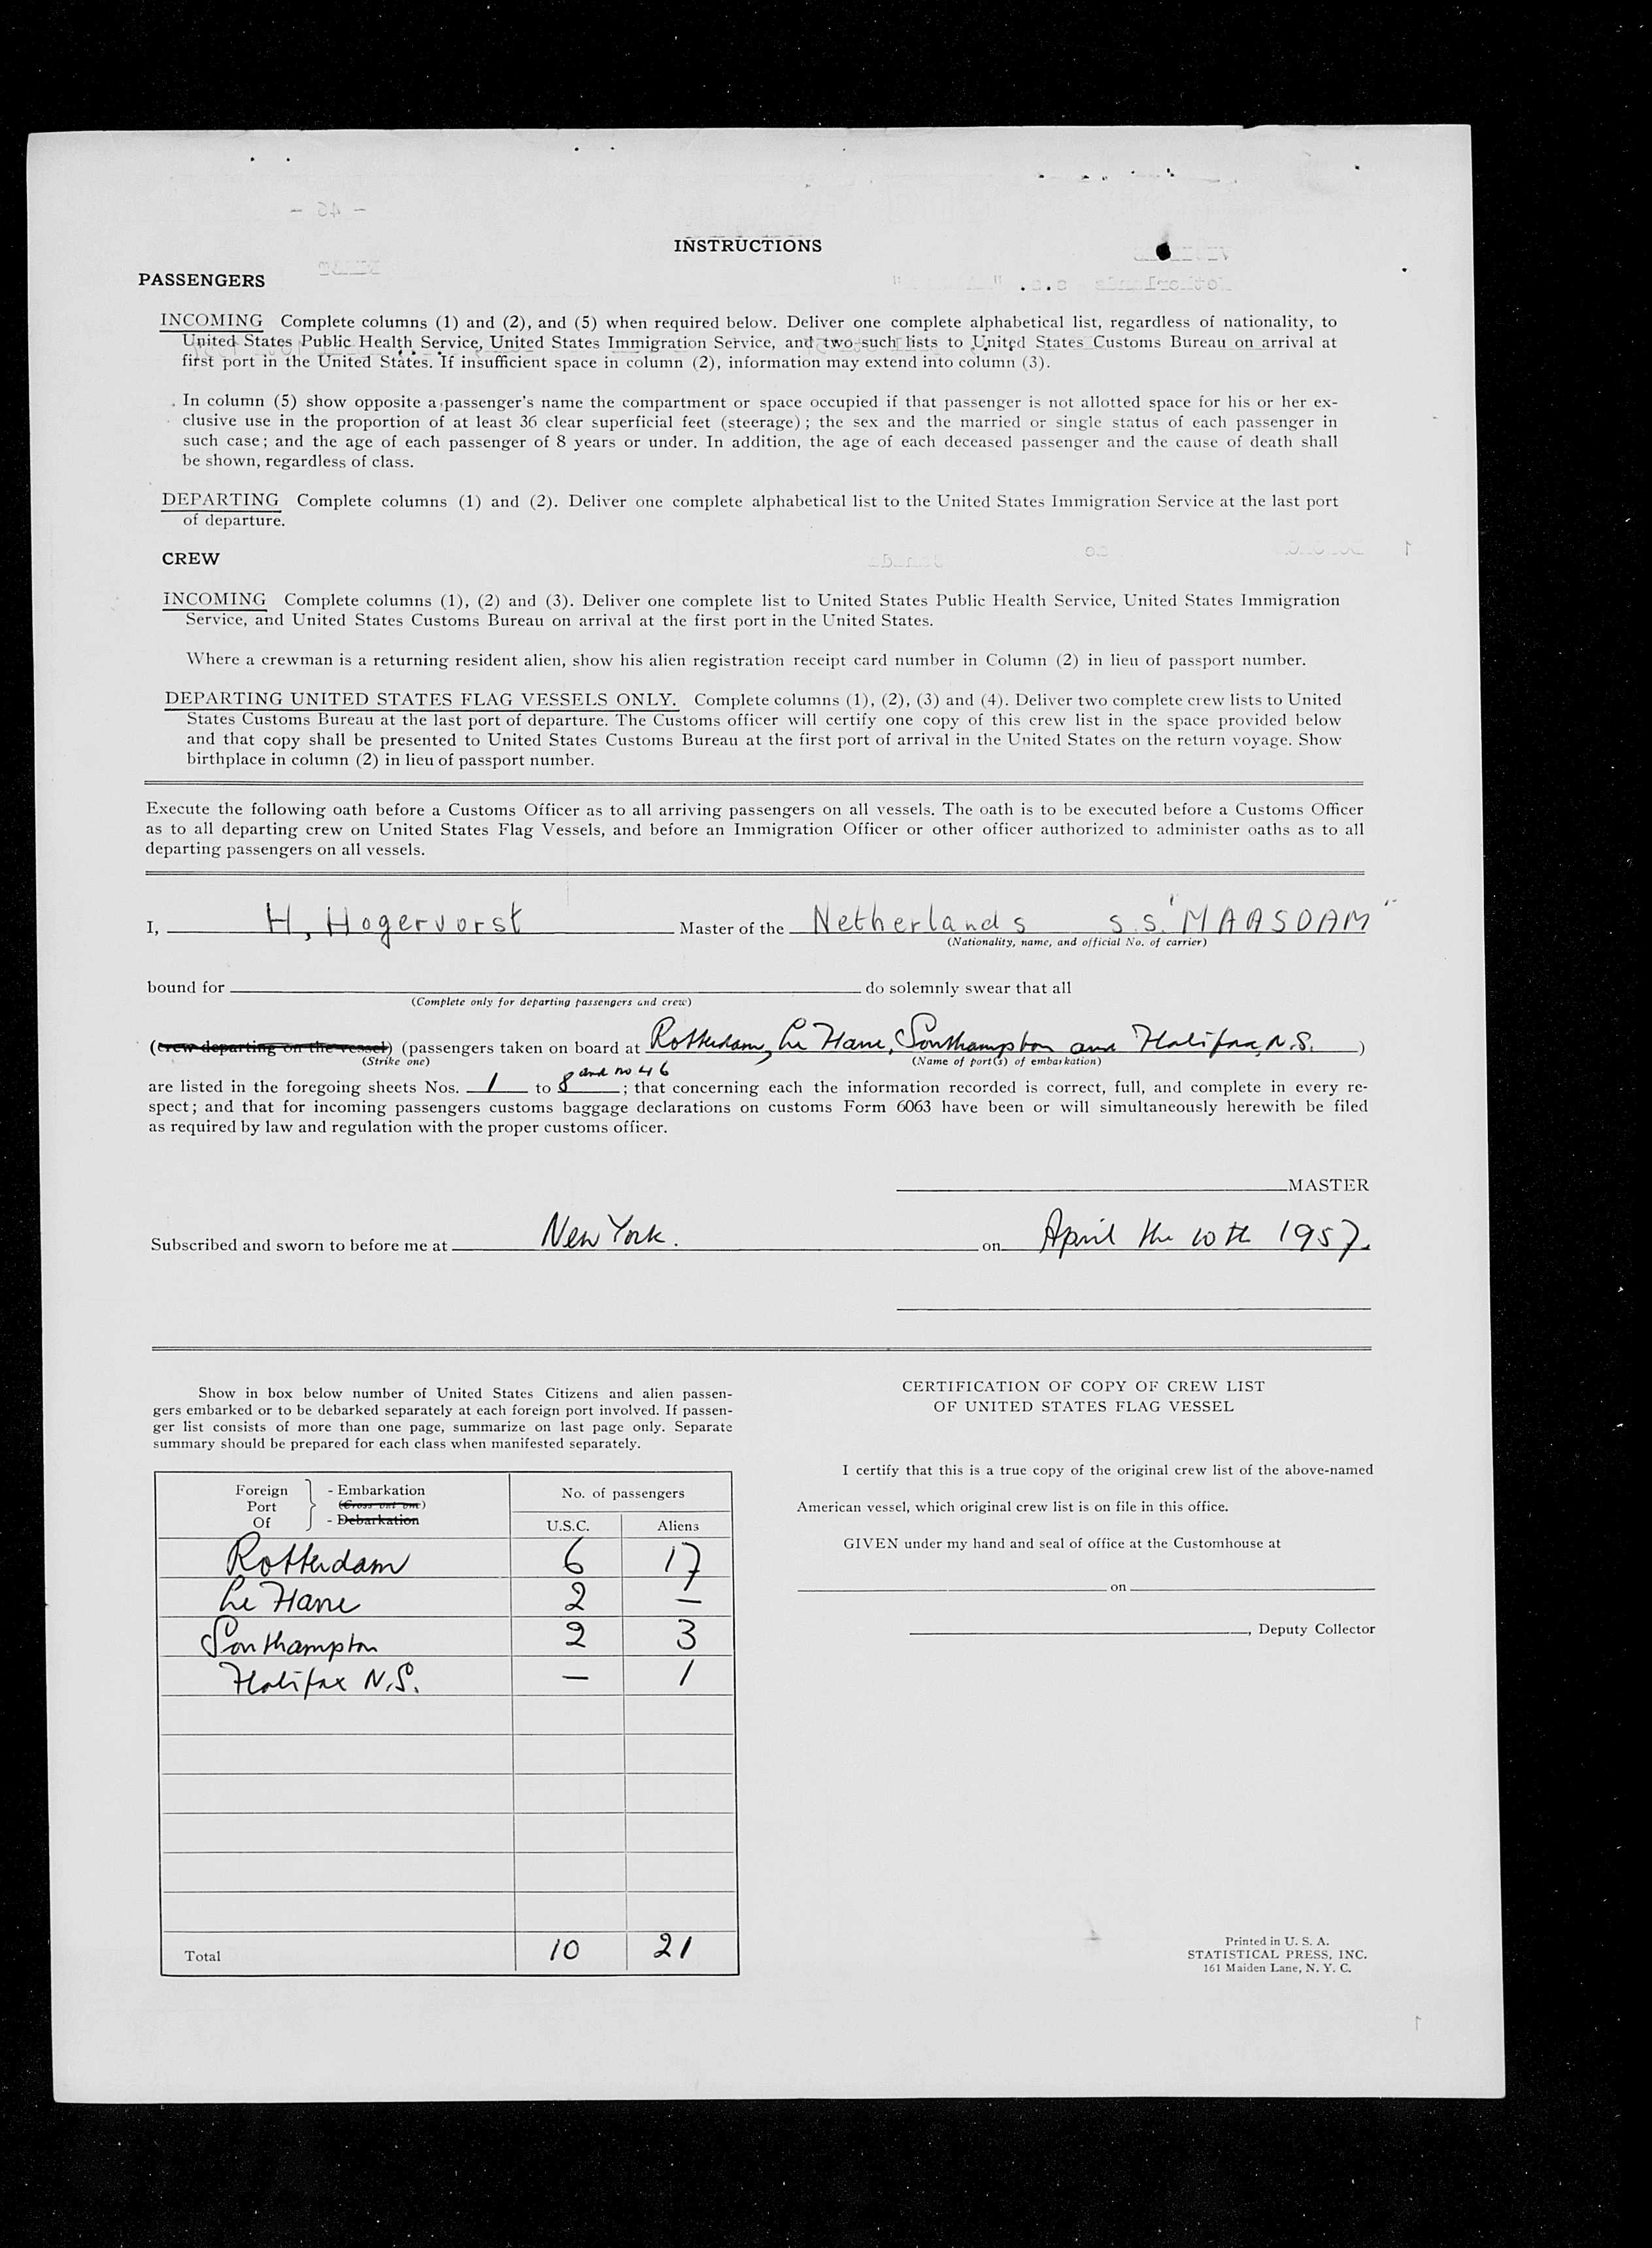 - 46 -
INSTRUCTIONS
PASSENGERS
INCOMING Complete columns (1) and (2), and (5) when required below. Deliver one complete alphabetical list, regardless of nationality, to
United States Public Health Service, United States Immigration Service, and two such lists to United States Customs Bureau on arrival at
first port in the United States. If insufficient space in column (2), information may extend into column (3).
In column (5) show opposite a passenger's name the compartment or space occupied if that passenger is not allotted space for his or her ex-
clusive use in the proportion of at least 36 clear superficial feet (steerage); the sex and the married or single status of each passenger in
such case; and the age of each passenger of 8 years or under. In addition, the age of each deceased passenger and the cause of death shall
be shown, regardless of class.
DEPARTING Complete columns (1) and (2). Deliver one complete alphabetical list to the United States Immigration Service at the last port
of departure.
CREW
INCOMING Complete columns (1), (2) and (3). Deliver one complete list to United States Public Health Service, United States Immigration
Service, and United States Customs Bureau on arrival at the first port in the United States.
Where a crewman is a returning resident alien, show his alien registration receipt card number in Column (2) in lieu of passport number.
DEPARTING UNITED STATES FLAG VESSELS ONLY. Complete columns (1), (2), (3) and (4). Deliver two complete crew lists to United
States Customs Bureau at the last port of departure. The Customs officer will certify one copy of this crew list in the space provided below
and that copy shall be presented to United States Customs Bureau at the first port of arrival in the United States on the return voyage. Show
birthplace in column (2) in lieu of passport number.
Execute the following oath before a Customs Officer as to all arriving passengers on all vessels. The oath is to be executed before a Customs Officer
as to all departing crew on United States Flag Vessels, and before an Immigration Officer or other officer authorized to administer oaths as to all
departing passengers on all vessels.
I, H, Hogervorst Master of the Netherlands s.s. "MAASDAM"
(Nationality, name, and official No. of carrier)
bound for do solemnly swear that all
(Complete only for departing passengers and crew)
(crew departing on the vessel) (passengers taken on board at Rotterdam, Le Havre, Southampton and Halifax, N.S. )
(Strike one) (Name of port(s) of embarkation)
and no 46
are listed in the foregoing sheets Nos. 1 to 8 ; that concerning each the information recorded is correct, full, and complete in every re-
spect; and that for incoming passengers customs baggage declarations on customs Form 6063 have been or will simultaneously herewith be filed
as required by law and regulation with the proper customs officer.
MASTER
Subscribed and sworn to before me at New York. on April the 10th 1957.
Show in box below number of United States Citizens and alien passen-
gers embarked or to be debarked separately at each foreign port involved. If passen-
ger list consists of more than one page, summarize on last page only. Separate
summary should be prepared for each class when manifested separately.
Foreign Port Of - Embarkation (Cross out one) - Debarkation
No. of passengers
U.S.C. Aliens
Rotterdam 6 17
Le Havre 2 —
Southampton 2 3
Halifax N.S. — 1
Total 10 21
CERTIFICATION OF COPY OF CREW LIST
OF UNITED STATES FLAG VESSEL
I certify that this is a true copy of the original crew list of the above-named
American vessel, which original crew list is on file in this office.
GIVEN under my hand and seal of office at the Customhouse at
on
, Deputy Collector
Printed in U. S. A.
STATISTICAL PRESS, INC.
161 Maiden Lane, N. Y. C.